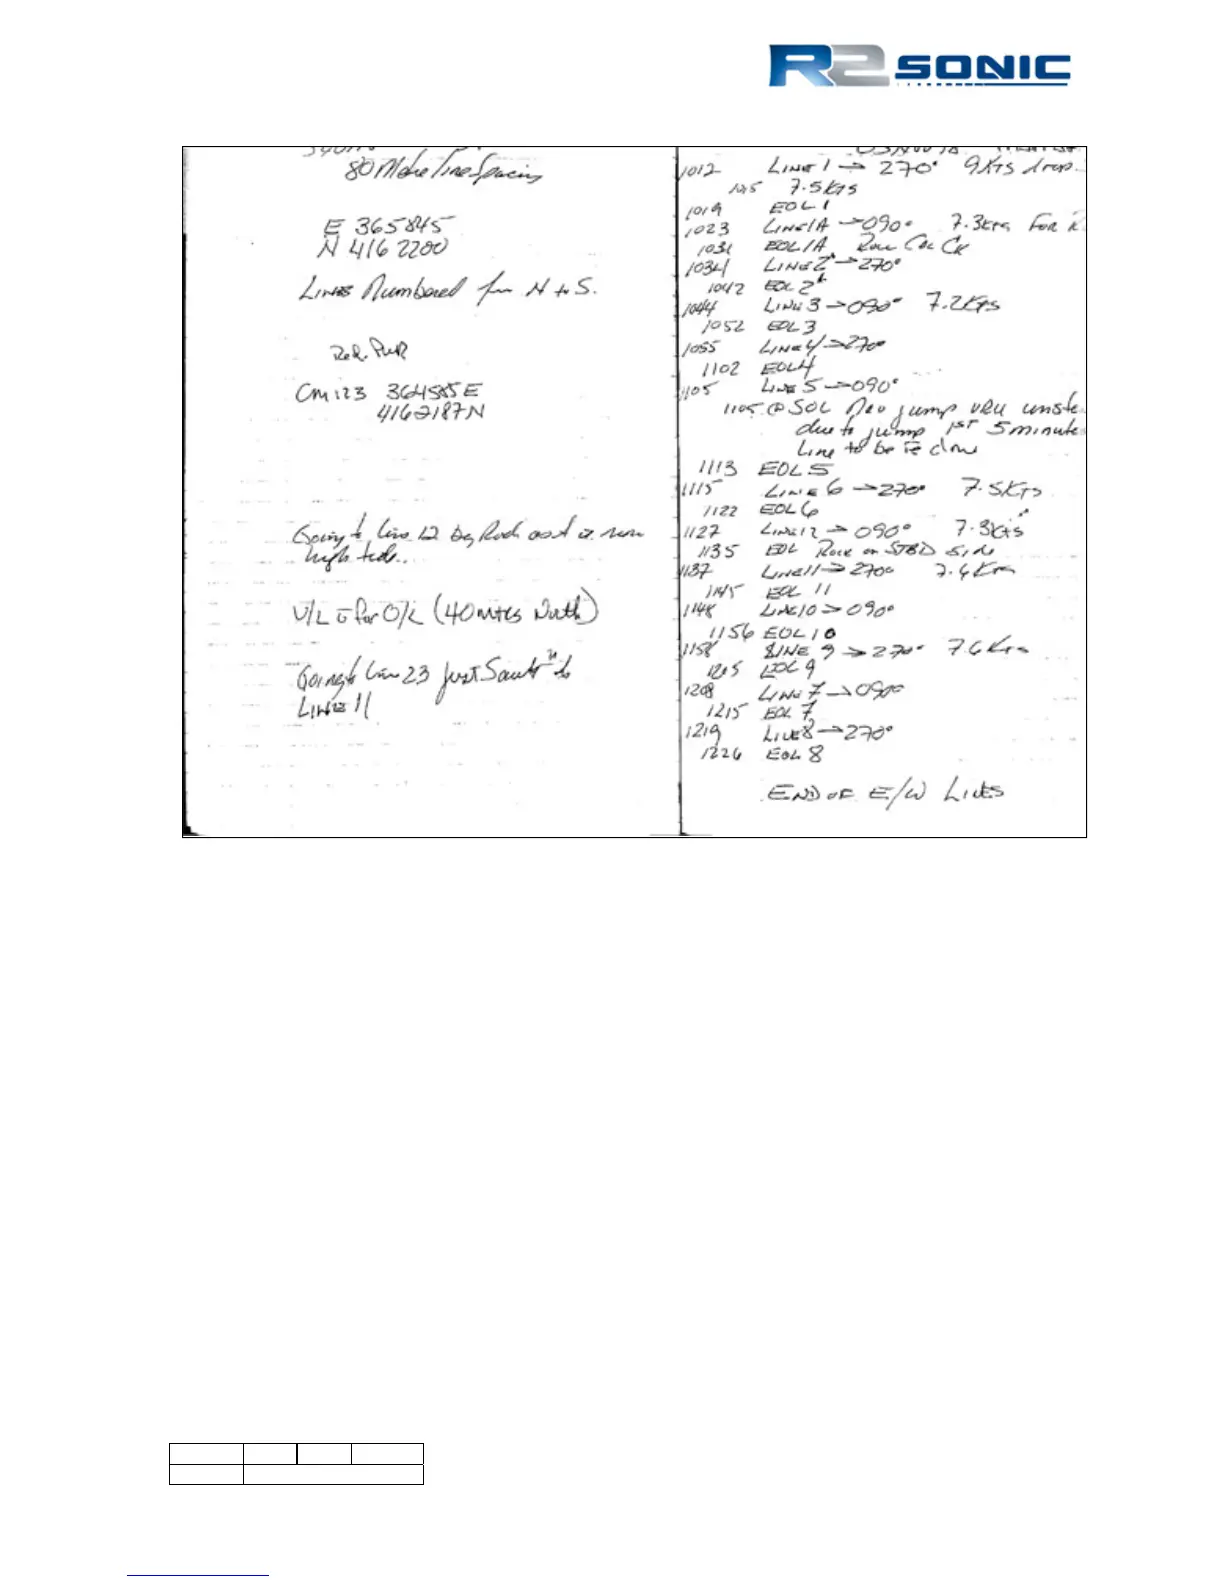 R2SONIC
80 Metre Line Spacing
E 365845
N 4162200
LINES Numbered from N to S.
Rel. PWR
Cm123 364585E
4162187N
Going to Line 12 big Rock and is near
high tide..
V/L for O/L (40 mtrs North)
Going to Line 23 Just South to
LINE 11
1012 LINE 1 → 270° 9KTS drop
1015 7.5KTS
1019 EOL 1
1023 LINE1A → 090° 7.3KTS FOR R
1031 EOL1A Roll CAL CK
1034 LINE 2 → 270°
1042 EOL 2
1044 LINE 3 → 090° 7.2KTS
1052 EOL 3
1055 LINE 4 → 270°
1102 EOL 4
1105 LINE 5 → 090°
1105 @ SOL Nav jump VRU unste
due to jump 1ST 5 minute
Line to be re done
1113 EOL 5
1115 LINE 6 → 270° 7.5KTS
1122 EOL 6
1127 LINE 12 → 090° 7.3KTS
1135 EOL Rock on STBD side
1137 LINE 11 → 270° 7.4KTS
1145 EOL 11
1148 LINE 10 → 090°
1156 EOL 10
1158 LINE 9 → 270° 7.6KTS
1205 EOL 9
1208 LINE 7 → 090°
1215 EOL 7
1219 LINE 8 → 270°
1226 EOL 8
END OF E/W LINES